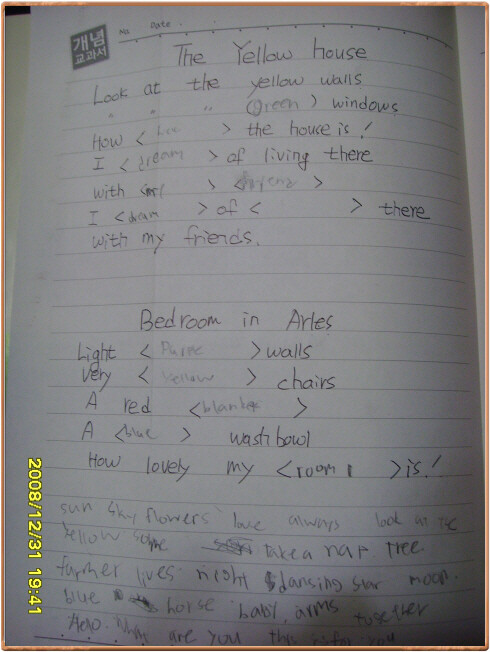 개념
교과서
No Date
The Yellow house
Look at the yellow walls
" " " (Green > windows
How < > the house is!
I < dream > of living there
with > < >
I < dream > of < > there
with my friends.
Bedroom in Arles
Light < > walls
Very < Yellow > chairs
A red < >
A < blue > wash bowl
How lovely my < room > is!
sun sky flowers love always look at the
Yellow some take a nap tree
lives night dansing star moon.
blue horse baby arms together
are you this is for you
2008/12/31 19:41